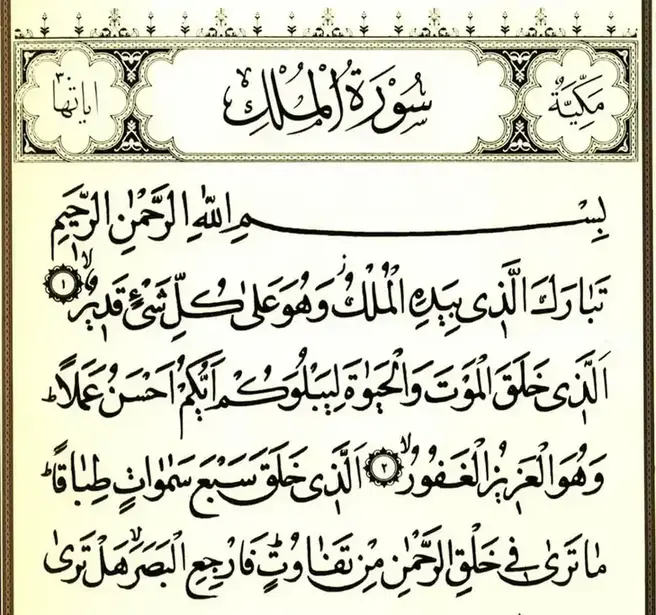 مَكِّيَّةٌ سُورَةُ الْمُلْكِ اٰيَاتُهَا ٣٠
بِسْمِ اللّٰهِ الرَّحْمٰنِ الرَّحِيمِ
تَبَارَكَ الَّذِى بِيَدِهِ الْمُلْكُ ز وَهُوَ عَلٰى كُلِّ شَىْءٍ قَدِيرٌ ۙ ﴿١﴾
اَلَّذِى خَلَقَ الْمَوْتَ وَالْحَيٰوةَ لِيَبْلُوَكُمْ اَيُّكُمْ اَحْسَنُ عَمَلًا ط
وَهُوَ الْعَزِيزُ الْغَفُورُ ۙ ﴿٢﴾ اَلَّذِى خَلَقَ سَبْعَ سَمٰوَاتٍ طِبَاقًا ط
مَا تَرٰى فِى خَلْقِ الرَّحْمٰنِ مِنْ تَفَاوُتٍ ط فَارْجِعِ الْبَصَرَ ۙ هَلْ تَرٰى